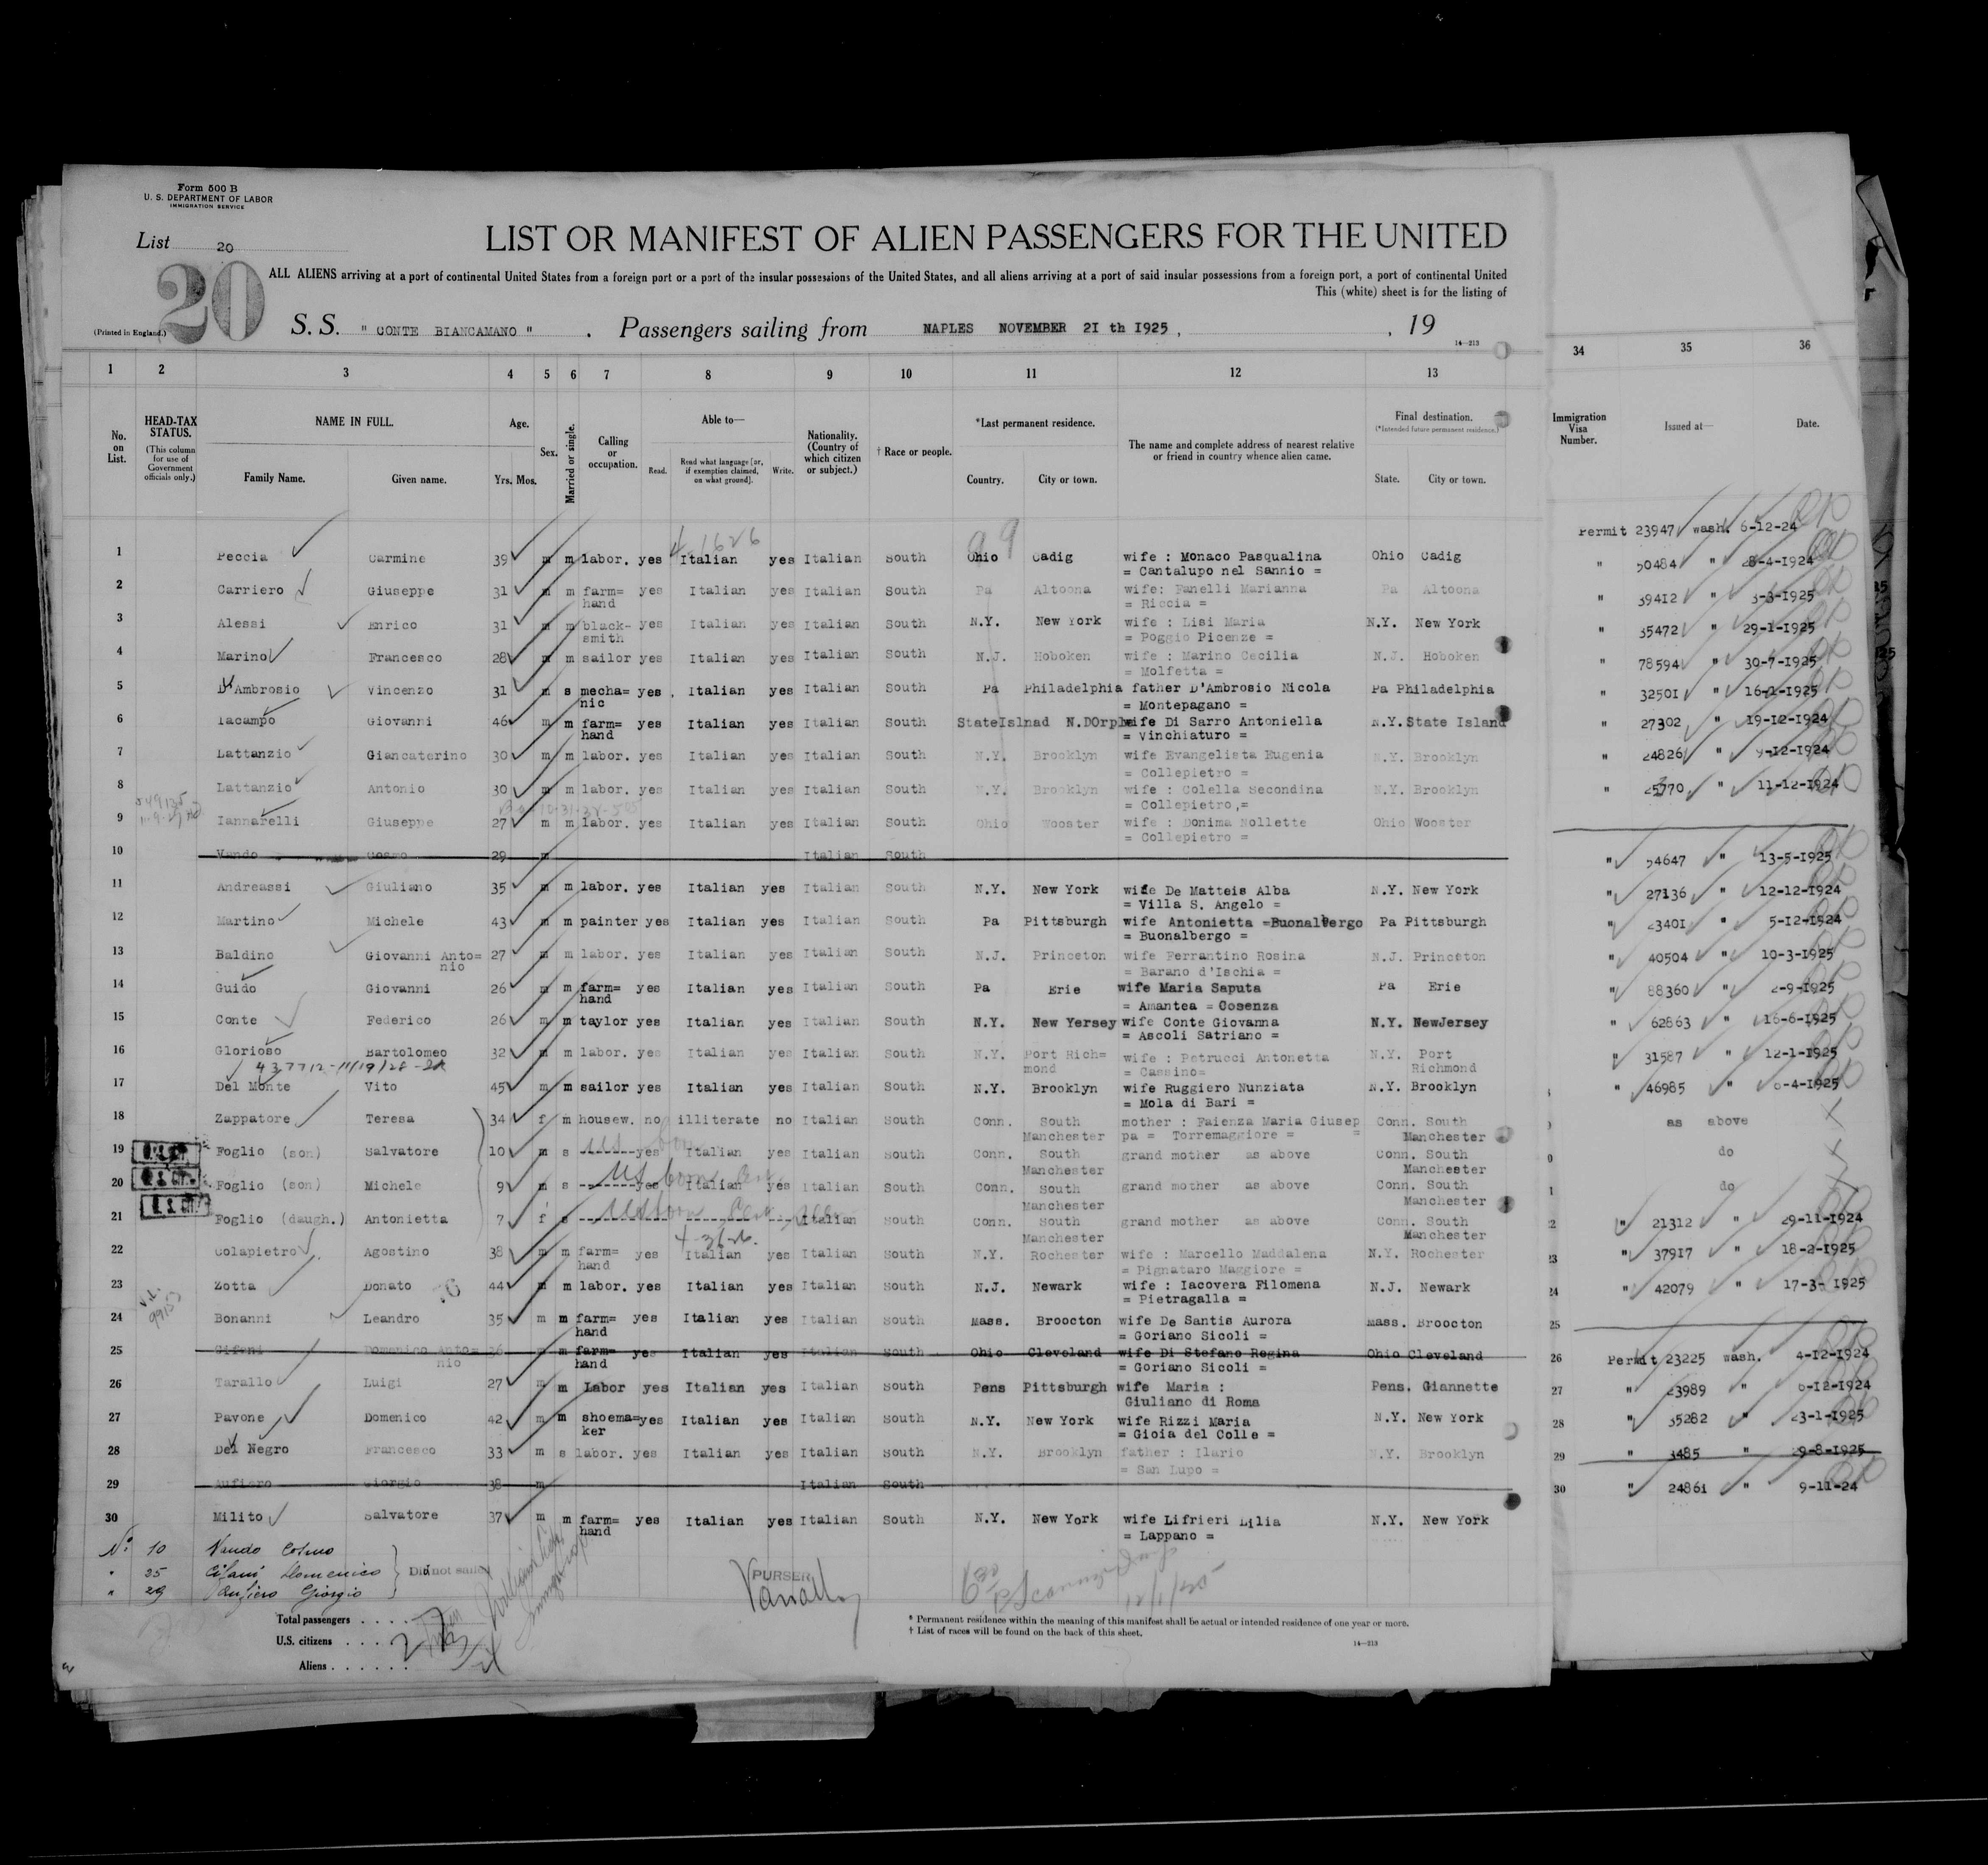 Form 500 B
U. S. DEPARTMENT OF LABOR
IMMIGRATION SERVICE
List 20
20
LIST OR MANIFEST OF ALIEN PASSENGERS FOR THE UNITED
ALL ALIENS arriving at a port of continental United States from a foreign port or a port of the insular possessions of the United States, and all aliens arriving at a port of said insular possessions from a foreign port, a port of continental United
This (white) sheet is for the listing of
(Printed in England.)
S. S. " CONTE BIANCAMANO " . Passengers sailing from NAPLES NOVEMBER 2I th I925 , , 19
14—213
1 2 3 4 5 6 7 8 9 10 11 12 13 34 35 36
No. on List.
HEAD-TAX STATUS.
(This column for use of Government officials only.)
NAME IN FULL.
Family Name. Given name.
Age.
Yrs. Mos.
Sex.
Married or single.
Calling or occupation.
Able to—
Read. Read what language [or, if exemption claimed, on what ground]. Write.
Nationality. (Country of which citizen or subject.)
† Race or people.
*Last permanent residence.
Country. City or town.
The name and complete address of nearest relative or friend in country whence alien came.
Final destination.
(*Intended future permanent residence.)
State. City or town.
Immigration Visa Number.
Issued at—
Date.
4-1626
99
Permit 23947 wash. 6-12-24
1 Peccia Carmine 39 m m labor. yes Italian yes Italian South Ohio Cadig wife : Monaco Pasqualina Ohio Cadig
= Cantalupo nel Sannio =
" 50484 " 28-4-I924
2 Carriero Giuseppe 31 m m farm= yes Italian yes Italian South Pa Altoona wife: Fanelli Marianna Pa Altoona
hand = Riccia =
" 39412 " 3-3-I925
3 Alessi Enrico 31 m m black- yes Italian yes Italian South N.Y. New York wife : Lisi Maria N.Y. New York
smith = Poggio Picenze =
" 35472 " 29-1-I925
4 Marino Francesco 28 m m sailor yes Italian yes Italian South N.J. Hoboken wife : Marino Cecilia N.J. Hoboken
= Molfetta =
" 78594 " 30-7-I925
5 D'Ambrosio Vincenzo 31 m s mecha= yes , Italian yes Italian South Pa Philadelphia father D'Ambrosio Nicola Pa Philadelphia
nic = Montepagano =
" 3250I " 16-1-I925
6 Iacampo Giovanni 46 m m farm= yes Italian yes Italian South StateIslnad N.DOrphe wife Di Sarro Antoniella N.Y. State Island
hand = Vinchiaturo =
" 27302 " 19-12-I924
7 Lattanzio Giancaterino 30 m m labor. yes Italian yes Italian South N.Y. Brooklyn wife Evangelista Eugenia N.Y. Brooklyn
= Collepietro =
" 24826 " 9-12-I924
8 Lattanzio Antonio 30 m m labor. yes Italian yes Italian South N.Y. Brooklyn wife : Colella Secondina N.Y. Brooklyn
= Collepietro,=
" 25770 " 11-12-I924
9 Iannarelli Giuseppe 27 m m labor. yes Italian yes Italian South Ohio Wooster wife : Donima Nollette Ohio Wooster
= Collepietro =
10 Vando Cosmo 29 m Italian South
" 54647 " 13-5-I925
11 Andreassi Giuliano 35 m m labor. yes Italian yes Italian South N.Y. New York wife De Matteis Alba N.Y. New York
= Villa S. Angelo =
" 27I36 " 12-12-I924
12 Martino Michele 43 m m painter yes Italian yes Italian South Pa Pittsburgh wife Antonietta =Buonalbergo Pa Pittsburgh
= Buonalbergo =
" 2340I " 5-12-I924
13 Baldino Giovanni Anto= 27 m m labor. yes Italian yes Italian South N.J. Princeton wife Ferrantino Rosina N.J. Princeton
nio = Barano d'Ischia =
" 40504 " 10-3-I925
14 Guido Giovanni 26 m m farm= yes Italian yes Italian South Pa Erie wife Maria Saputa Pa Erie
hand = Amantea = Cosenza
" 88360 " 2-9-I925
15 Conte Federico 26 m m taylor yes Italian yes Italian South N.Y. New Yersey wife Conte Giovanna N.Y. NewJersey
= Ascoli Satriano =
" 62863 " 16-6-I925
16 Glorioso Bartolomeo 32 m m labor. yes Italian yes Italian South N.Y. Port Rich= wife : Petrucci Antonetta N.Y. Port
437712-11/19/28 mond = Cassino= Richmond
" 31587 " 12-1-I925
17 Del Monte Vito 45 m m sailor yes Italian yes Italian South N.Y. Brooklyn wife Ruggiero Nunziata N.Y. Brooklyn
= Mola di Bari =
" 46985 " 6-4-I925
18 Zappatore Teresa 34 f m housew. no illiterate no Italian South Conn. South mother : Faienza Maria Giusep Conn. South
Manchester pa = Torremaggiore = = Manchester
as above
19 Foglio (son) Salvatore 10 m s US born yes Italian yes Italian South Conn. South grand mother as above Conn. South
Manchester Manchester
do
20 Foglio (son) Michele 9 m s US born yes Italian yes Italian South Conn. South grand mother as above Conn. South
Manchester Manchester
do
21 Foglio (daugh.) Antonietta 7 f s US born Italian South Conn. South grand mother as above Conn. South
Manchester Manchester
" 21312 " 29-11-I924
22 Colapietro Agostino 38 m m farm= yes Italian yes Italian South N.Y. Rochester wife : Marcello Maddalena N.Y. Rochester
hand = Pignataro Maggiore =
23 " 37917 " 18-2-I925
23 Zotta Donato 44 m m labor. yes Italian yes Italian South N.J. Newark wife : Iacovera Filomena N.J. Newark
= Pietragalla =
24 " 42079 " 17-3- I925
24 Bonanni Leandro 35 m m farm= yes Italian yes Italian South Mass. Broocton wife De Santis Aurora Mass. Broocton
hand = Goriano Sicoli =
25
25 Cifani Domenico Anto= 36 m m farm= yes Italian yes Italian South Ohio Cleveland wife Di Stefano Regina Ohio Cleveland
nio hand = Goriano Sicoli =
26 Permit 23225 wash. 4-12-I924
26 Tarallo Luigi 27 m m Labor yes Italian yes Italian South Pens Pittsburgh wife Maria : Pens. Giannette
Giuliano di Roma
27 " 23989 " 6-12-I924
27 Pavone Domenico 42 m m shoema= yes Italian yes Italian South N.Y. New York wife Rizzi Maria N.Y. New York
ker = Gioia del Colle =
28 " 35282 " 23-1-I925
28 Del Negro Francesco 33 m s labor. yes Italian yes Italian South N.Y. Brooklyn father : Ilario N.Y. Brooklyn
= San Lupo =
29 " 3485 " 29-8-I925
29 Aufiero Giorgio 38 m Italian South
30 " 2486i " 9-11-24
30 Milito Salvatore 37 m m farm= yes Italian yes Italian South N.Y. New York wife Lifrieri Lilia N.Y. New York
hand = Lappano =
No 10 Vando Cosmo
" 25 Cifani Domenico } Did not sail
" 29 Aufiero Giorgio
PURSER
12/1/25
Total passengers . . . .
U.S. citizens . . . .
Aliens . . . . . .
* Permanent residence within the meaning of this manifest shall be actual or intended residence of one year or more.
† List of races will be found on the back of this sheet.
14—213